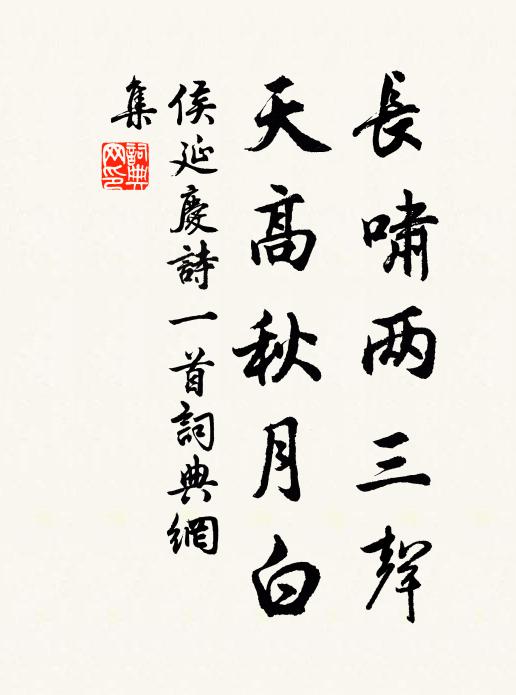 長嘯两三聲
天高秋月白
侯延慶詩一首詞典網
集
詞典
网印